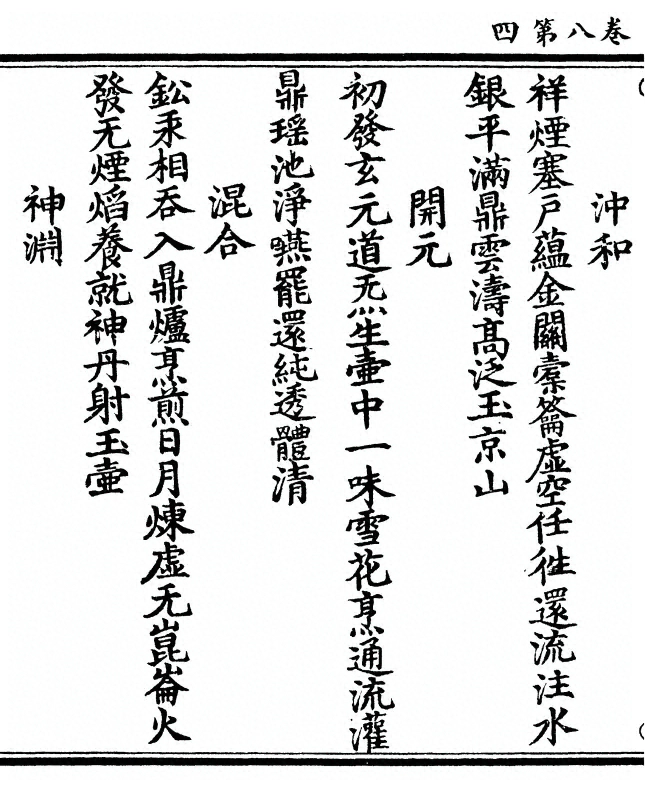 四第八卷
沖和
祥煙塞戸蘊金關橐籥虛空任徃還流注水
銀平滿鼎雲濤髙泛玉京山
開元
初發玄元道炁生壷中一味雪花烹通流灌
鼎瑶池淨嚥罷還純透體清
混合
鈆汞相吞入鼎爐烹煎日月煉虛无崑崙火
發无煙焰養就神丹射玉壷
神淵